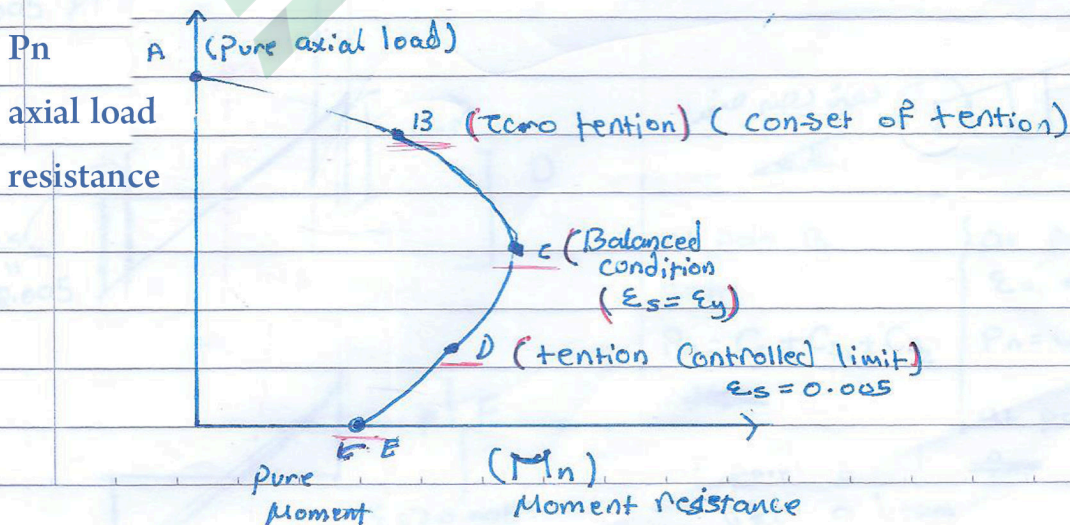 Pn
axial load
resistance
A (Pure axial load)
B (zero tention) (onset of tention)
C (Balanced
condition
(εs = εy)
D (tention Controlled limit)
εs = 0.005
E
Pure
Moment
(Mn)
Moment resistance